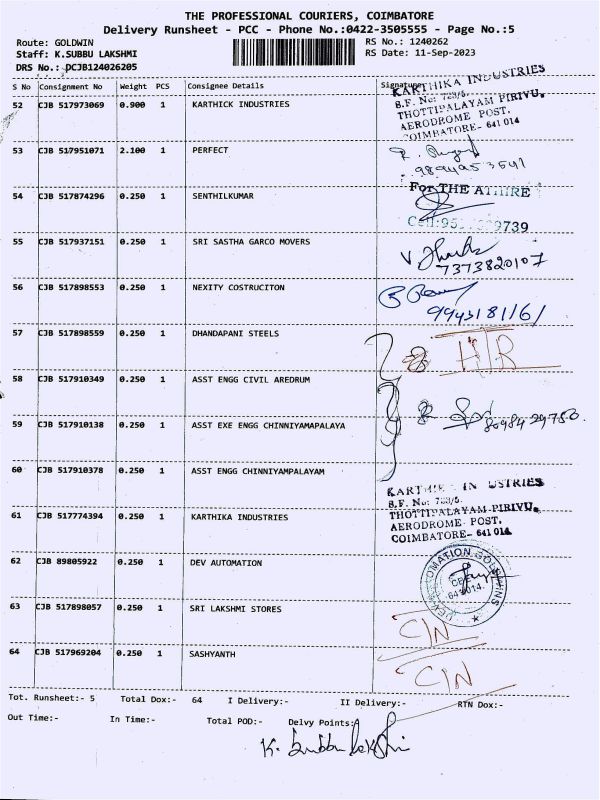 THE PROFESSIONAL COURIERS, COIMBATORE
Delivery Runsheet - PCC - Phone No.:0422-3505555 - Page No.:5
Route: GOLDWIN RS No.: 1240262
Staff: K.SUBBU LAKSHMI RS Date: 11-Sep-2023
DRS No.: DCJB124026205
S No Consignment No Weight PCS Consignee Details Signature
KARTHIKA INDUSTRIES
S.F. No: 723/5.
THOTTIPALAYAM PIRIVU,
AERODROME POST,
COIMBATORE- 641 014
52 CJB 517973069 0.900 1 KARTHICK INDUSTRIES
53 CJB 517951071 2.100 1 PERFECT
54 CJB 517874296 0.250 1 SENTHILKUMAR
For THE ATHIRE
55 CJB 517937151 0.250 1 SRI SASTHA GARCO MOVERS
7373820107
56 CJB 517898553 0.250 1 NEXITY COSTRUCITON
57 CJB 517898559 0.250 1 DHANDAPANI STEELS
58 CJB 517910349 0.250 1 ASST ENGG CIVIL AREDRUM
59 CJB 517910138 0.250 1 ASST EXE ENGG CHINNIYAMAPALAYA
60 CJB 517910378 0.250 1 ASST ENGG CHINNIYAMPALAYAM
KARTHIKA INDUSTRIES
S.F. No: 723/5.
THOTTIPALAYAM PIRIVU,
AERODROME POST,
COIMBATORE- 641 014
61 CJB 517774394 0.250 1 KARTHIKA INDUSTRIES
62 CJB 89805922 0.250 1 DEV AUTOMATION
63 CJB 517898057 0.250 1 SRI LAKSHMI STORES
C/N
64 CJB 517969204 0.250 1 SASHYANTH
C/N
Tot. Runsheet:- 5 Total Dox:- 64 I Delivery:- II Delivery:- RTN Dox:-
Out Time:- In Time:- Total POD:- Delvy Points:-
K. Subbu lakshmi